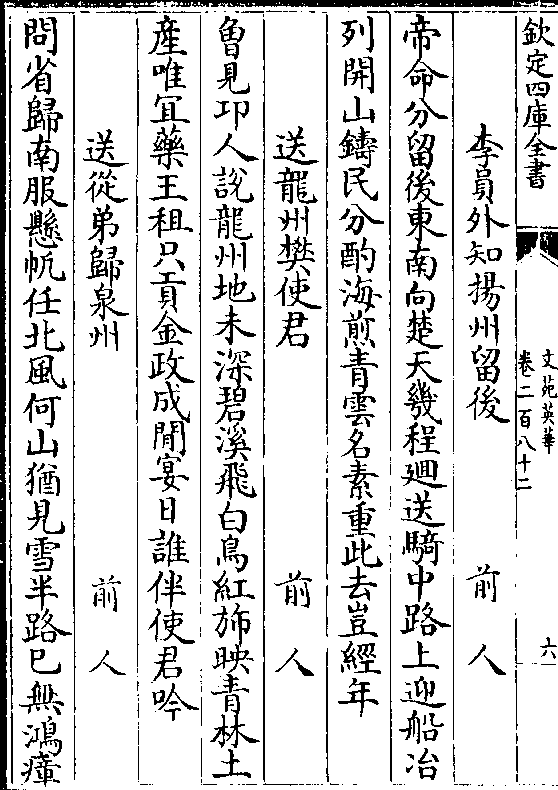 欽定四庫全書
文苑英華
卷二百八十二
六
李員外知揚州留後 前人
帝命分留後東南向楚天幾程廻送騎中路上迎船冶
列開山鑄民分酌海煎青雲名素重此去豈經年
送龍州樊使君 前人
曾見卭人說龍州地未深碧溪飛白鳥紅斾映青林土
產唯冝藥王租只貢金政成閒宴日誰伴使君吟
送從弟歸泉州 前人
問省歸南服懸帆任北風何山猶見雪半路已無鴻瘴